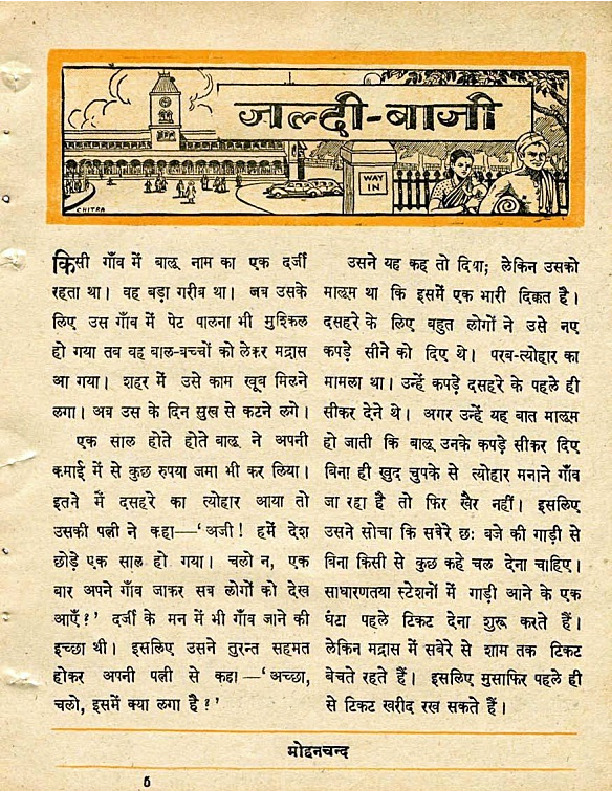 जल्दी-बाजी
WAY
IN
CHITRA
किसी गाँव में बालू नाम का एक दर्जी
रहता था। वह बड़ा गरीब था। जब उसके
लिए उस गाँव में पेट पालना भी मुश्किल
हो गया तब वह बाल-बच्चों को लेकर मद्रास
आ गया। शहर में उसे काम खूब मिलने
लगा। अब उस के दिन सुख से कटने लगे।
एक साल होते होते बालू ने अपनी
कमाई में से कुछ रुपया जमा भी कर लिया।
इतने में दसहरे का त्योहार आया तो
उसकी पत्नी ने कहा—'अजी! हमें देश
छोड़े एक साल हो गया। चलो न, एक
बार अपने गाँव जाकर सब लोगों को देख
आएँ?' दर्जी के मन में भी गाँव जाने की
इच्छा थी। इसलिए उसने तुरन्त सहमत
होकर अपनी पत्नी से कहा—'अच्छा,
चलो, इसमें क्या लगा है?'
उसने यह कह तो दिया; लेकिन उसको
मालूम था कि इसमें एक भारी दिक्कत है।
दसहरे के लिए बहुत लोगों ने उसे नए
कपड़े सीने को दिए थे। परब-त्योहार का
मामला था। उन्हें कपड़े दसहरे के पहले ही
सीकर देने थे। अगर उन्हें यह बात मालूम
हो जाती कि बालू उनके कपड़े सीकर दिए
बिना ही खुद चुपके से त्योहार मनाने गाँव
जा रहा है तो फिर खैर नहीं। इसलिए
उसने सोचा कि सबेरे छः बजे की गाड़ी से
बिना किसी से कुछ कहे चल देना चाहिए।
साधारणतया स्टेशनों में गाड़ी आने के एक
घंटा पहले टिकट देना शुरू करते हैं।
लेकिन मद्रास में सबेरे से शाम तक टिकट
बेचते रहते हैं। इसलिए मुसाफिर पहले ही
से टिकट खरीद रख सकते हैं।
मोहनचन्द